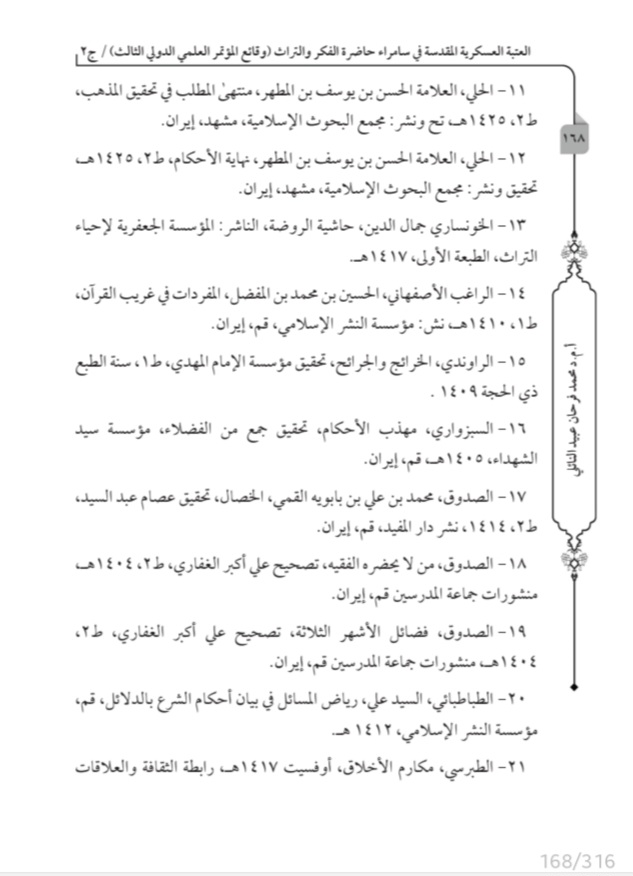 العتبة العسكرية المقدسة في سامراء حاضرة الفكر والتراث (وقائع المؤتمر العلمي الدولي الثالث) / ج٢
١٦٨
١١- الحلي، العلامة الحسن بن يوسف بن المطهر، منتهىٰ المطلب في تحقيق المذهب،
ط٢، ١٤٢٥هـ، تح ونشر: مجمع البحوث الإسلامية، مشهد، إيران.
١٢- الحلي، العلامة الحسن بن يوسف بن المطهر، نهاية الأحكام، ط٢، ١٤٢٥هـ،
تحقيق ونشر: مجمع البحوث الإسلامية، مشهد، إيران.
١٣- الخونساري جمال الدين، حاشية الروضة، الناشر: المؤسسة الجعفرية لإحياء
التراث، الطبعة الأولى، ١٤١٧هـ.
١٤- الراغب الأصفهاني، الحسين بن محمد بن المفضل، المفردات في غريب القرآن،
ط١، ١٤١٠هـ، نش: مؤسسة النشر الإسلامي، قم، إيران.
١٥- الراوندي، الخرائج والجرائح، تحقيق مؤسسة الإمام المهدي، ط١، سنة الطبع
ذي الحجة ١٤٠٩ .
١٦- السبزواري، مهذب الأحكام، تحقيق جمع من الفضلاء، مؤسسة سيد
الشهداء، ١٤٠٥هـ، قم، إيران.
١٧- الصدوق، محمد بن علي بن بابويه القمي، الخصال، تحقيق عصام عبد السيد،
ط٢، ١٤١٤، نشر دار المفيد، قم، إيران.
١٨- الصدوق، من لا يحضره الفقيه، تصحيح علي أكبر الغفاري، ط٢، ١٤٠٤هـ،
منشورات جماعة المدرسين قم، إيران.
١٩- الصدوق، فضائل الأشهر الثلاثة، تصحيح علي أكبر الغفاري، ط٢،
١٤٠٤هـ، منشورات جماعة المدرسين قم، إيران.
٢٠- الطباطبائي، السيد علي، رياض المسائل في بيان أحكام الشرع بالدلائل، قم،
مؤسسة النشر الإسلامي، ١٤١٢ هـ.
٢١- الطبرسي، مكارم الأخلاق، أوفسيت ١٤١٧هـ، رابطة الثقافة والعلاقات
أ.م.د محمد فرحان عبيد النائلي
168/316